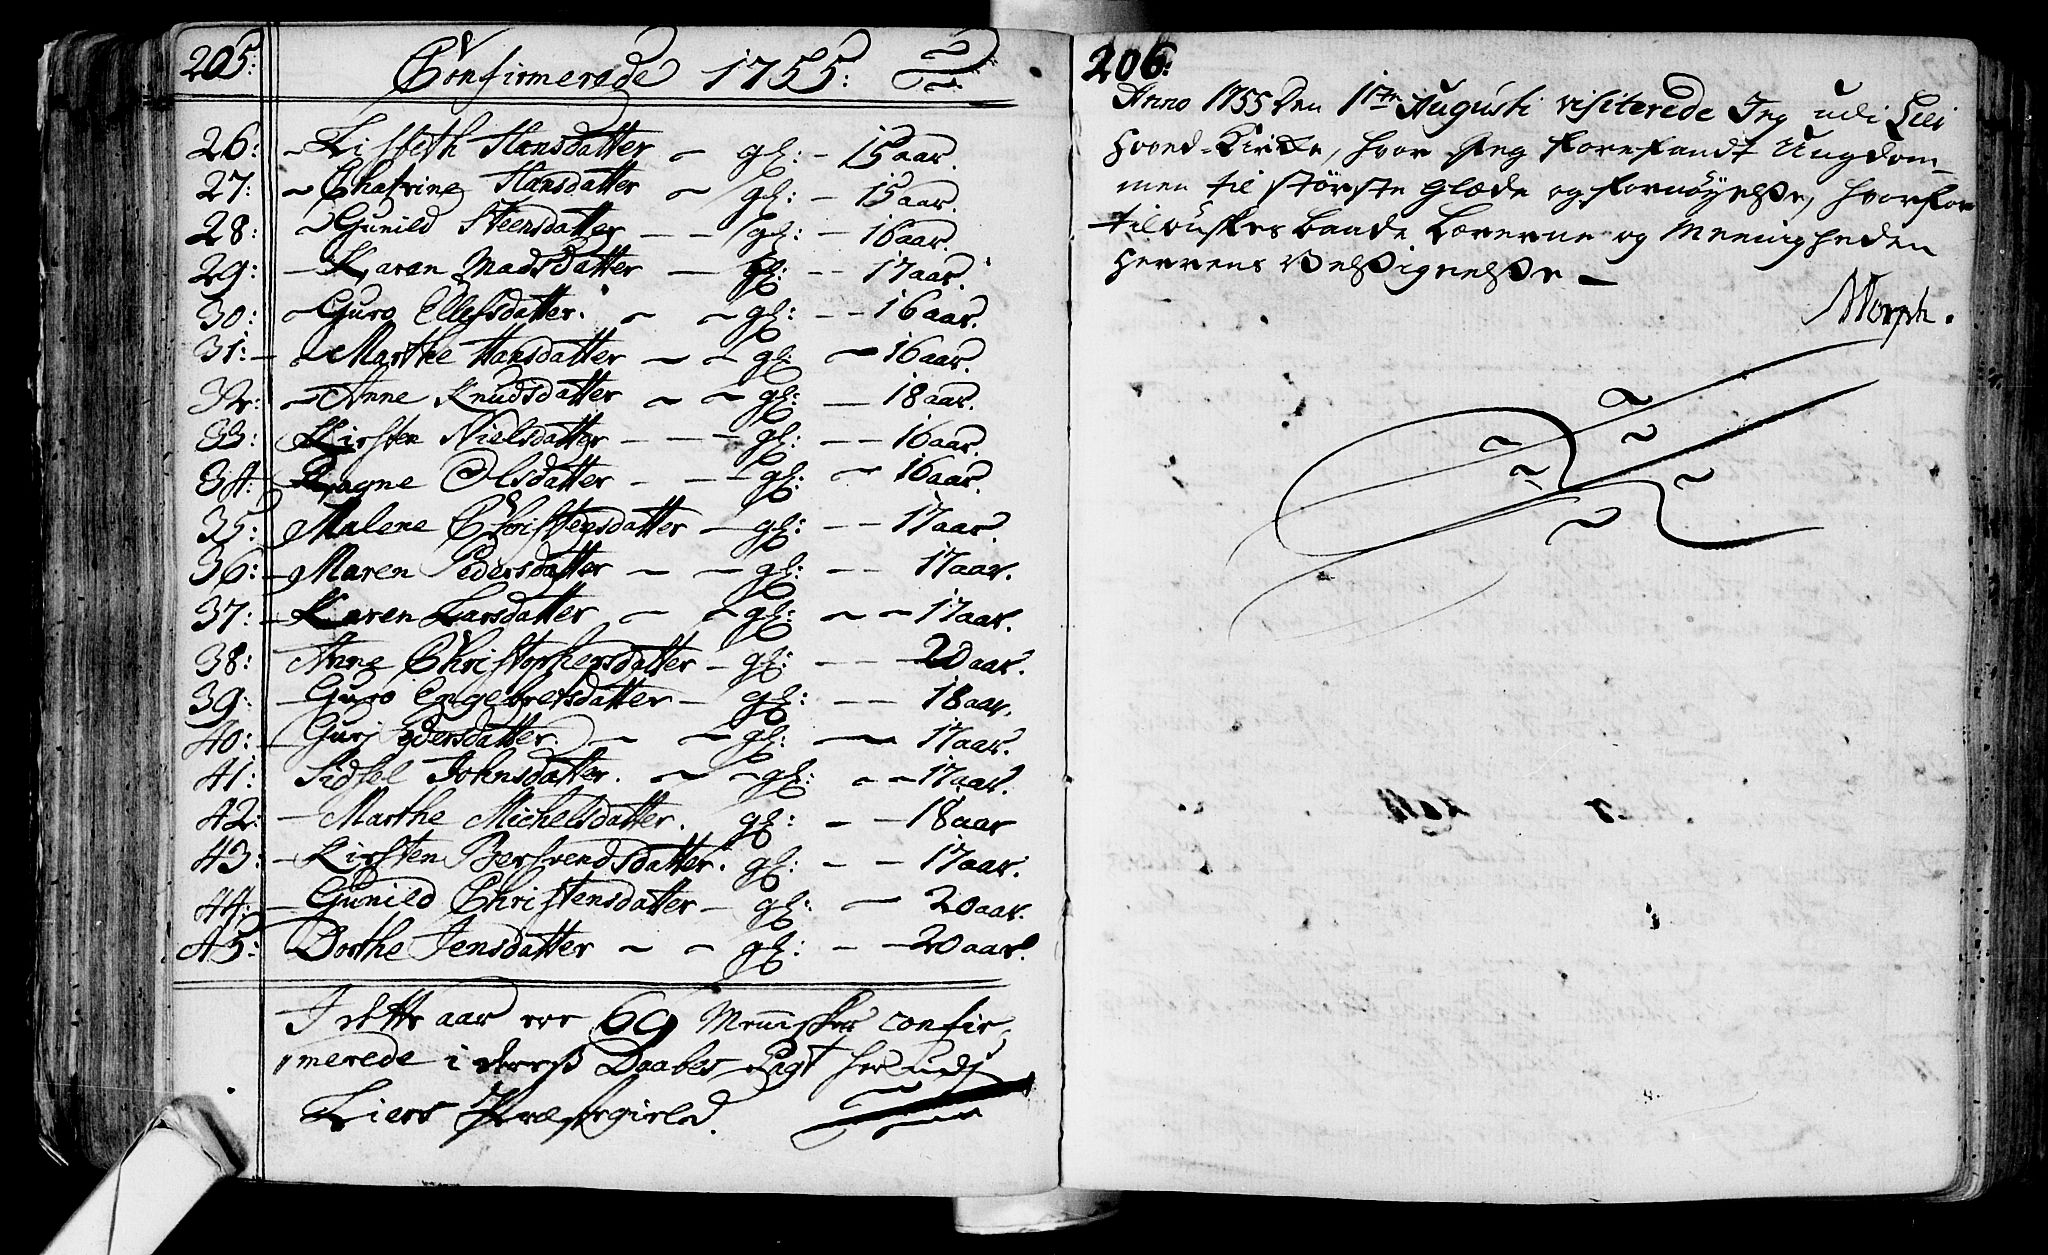 205:
Confirmerede 1755:
26: Lisbeth Hansdatter gl: 15 aar.
27: Chatrine Hansdatter gl: 15 aar.
28: Gunild Steensdatter gl: 16 aar.
29: Karen Madsdatter gl: 17 aar.
30: Guro Ellefsdatter. gl: 16 aar.
31: Marthe Hansdatter gl: 16 aar.
32: Anne Knudsdatter gl: 18 aar.
33: Kirsten Nielsdatter gl: 16 aar.
34: Ragne Olsdatter gl: 16 aar.
35: Malene Christensdatter gl: 17 aar.
36: Maren Pedersdatter gl: 17 aar.
37: Karen Larsdatter gl: 17 aar.
38: Anne Christophersdatter gl: 20 aar.
39: Guro Engebretsdatter gl: 18 aar.
40: Gurj Pedersdatter gl: 17 aar.
41: Sidsel Johnsdatter. gl: 17 aar.
42: Marthe Michelsdatter. gl: 18 aar
43: Kirsten Berhrendsdatter. gl: 17 aar.
44: Gunild Christensdatter gl: 20 aar.
45: Dorthe Jensdatter gl: 20 aar.
I dette aar ere 69 Mennisker confir-
merede i deres Daabes Pagt her udj
Liers Præstegield.
206:
Anno 1755 den 17de Augusti visiterede Jeg udi Lier
Hoved-Kirke, hvor Jeg forefandt Ungdom-
men til største Glæde og fornøyelse, hvorfor
tilønskes baade Lærerne og Meenigheden
Herrens Velsignelse